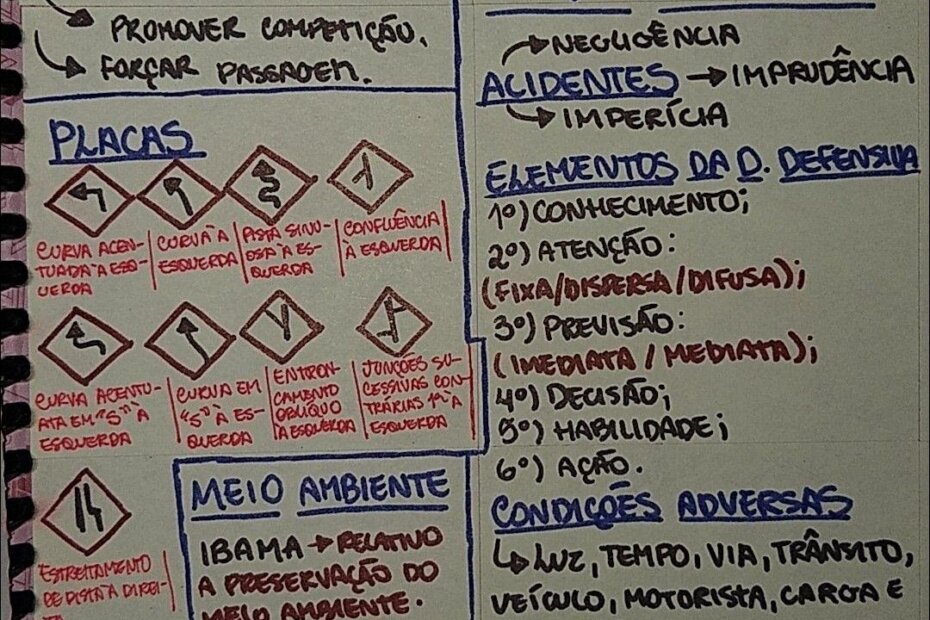 PROMOVER COMPETIÇÃO.
FORÇAR PASSAGEM.
PLACAS
CURVA ACEN-
TUADA À ESQ-
UERDA
CURVA À
ESQUERDA
PISTA SINU-
OSA À ES-
QUERDA
CONFLUÊNCIA
À ESQUERDA
CURVA ACENTU-
ADA EM "S" À
ESQUERDA
CURVA EM
"S" À ES-
QUERDA
ENTRON-
CAMENTO
OBLÍQUO
À ESQUERDA
JUNÇÕES SU-
CESSIVAS CON-
TRÁRIAS 1ª À
ESQUERDA
ESTREITAMENTO
DE PISTA À DIREI-
MEIO AMBIENTE
IBAMA → RELATIVO
A PRESERVAÇÃO DO
MEIO AMBIENTE.
NEGLIGÊNCIA
ACIDENTES → IMPRUDÊNCIA
IMPERÍCIA
ELEMENTOS DA D. DEFENSIVA
1º) CONHECIMENTO;
2º) ATENÇÃO:
(FIXA/DISPERSA/DIFUSA);
3º) PREVISÃO:
(IMEDIATA / MEDIATA);
4º) DECISÃO;
5º) HABILIDADE;
6º) AÇÃO.
CONDIÇÕES ADVERSAS
LUZ, TEMPO, VIA, TRÂNSITO,
VEÍCULO, MOTORISTA, CARGA E